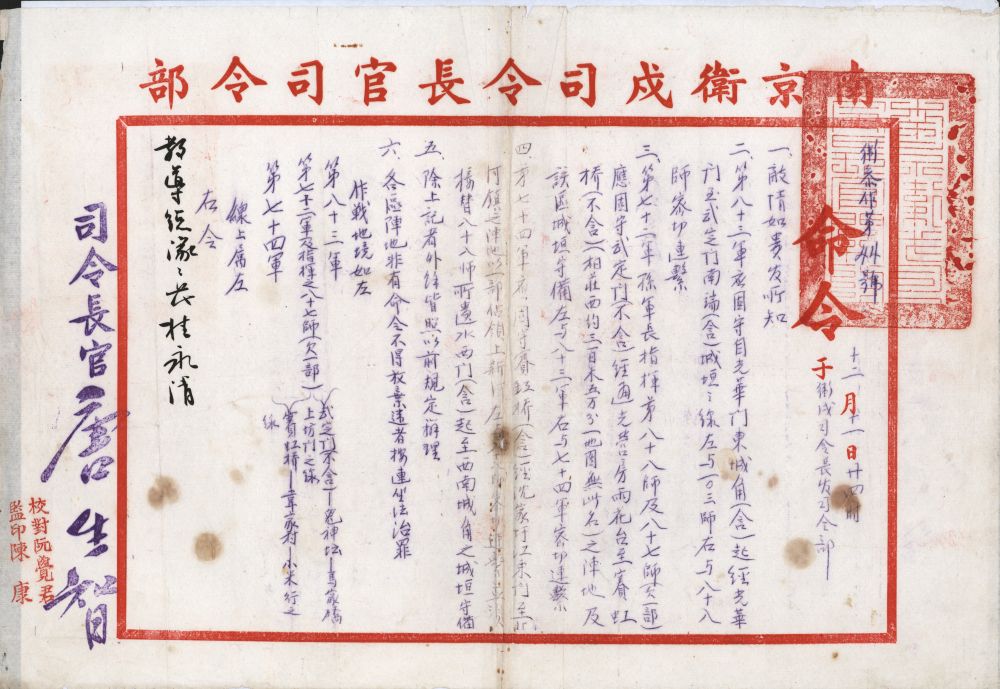 南京衛戍司令長官司令部
命令
十二月十一日廿四時
于衛戍司令長官司令部
衛參作第 號
一、敵情如貴官所知
二、第八十三軍應固守自光華門東城角(含)起經光華
門至武定門南端(含)城垣之線左與一〇三師右與八十八
師密切連繫
三、第七十二軍孫軍長指揮第八十八師及八十七師(欠一部)
應固守武定門(不含)經通光營房雨花台至賽虹
橋(不含)(相莊西約三百米五万分一地圖無此名)之陣地及
該區城垣守備左與八十三軍右與七十四軍密切連繫
四、第七十四軍應固守賽虹橋(含)經沈家圩江東門至北
河鎮之陣地以一部佔領上新河左
接替八十八師所遺水西門(含)起至西南城角之城垣守備
五、除上記者外餘皆照以前規定辦理
六、各區陣地非有命令不得放棄違者按連坐法治罪
作戰地境如左
第八十三軍
第七十二軍及指揮之八十七師(欠一部)
武定門(不含)—鬼神坛—馬家橋
上坊門之線
第七十四軍
賽虹橋— —小米行之
線
線上屬左
右令
教導總隊總隊長桂永清
司令長官唐生智
校對阮覺君
監印陳康